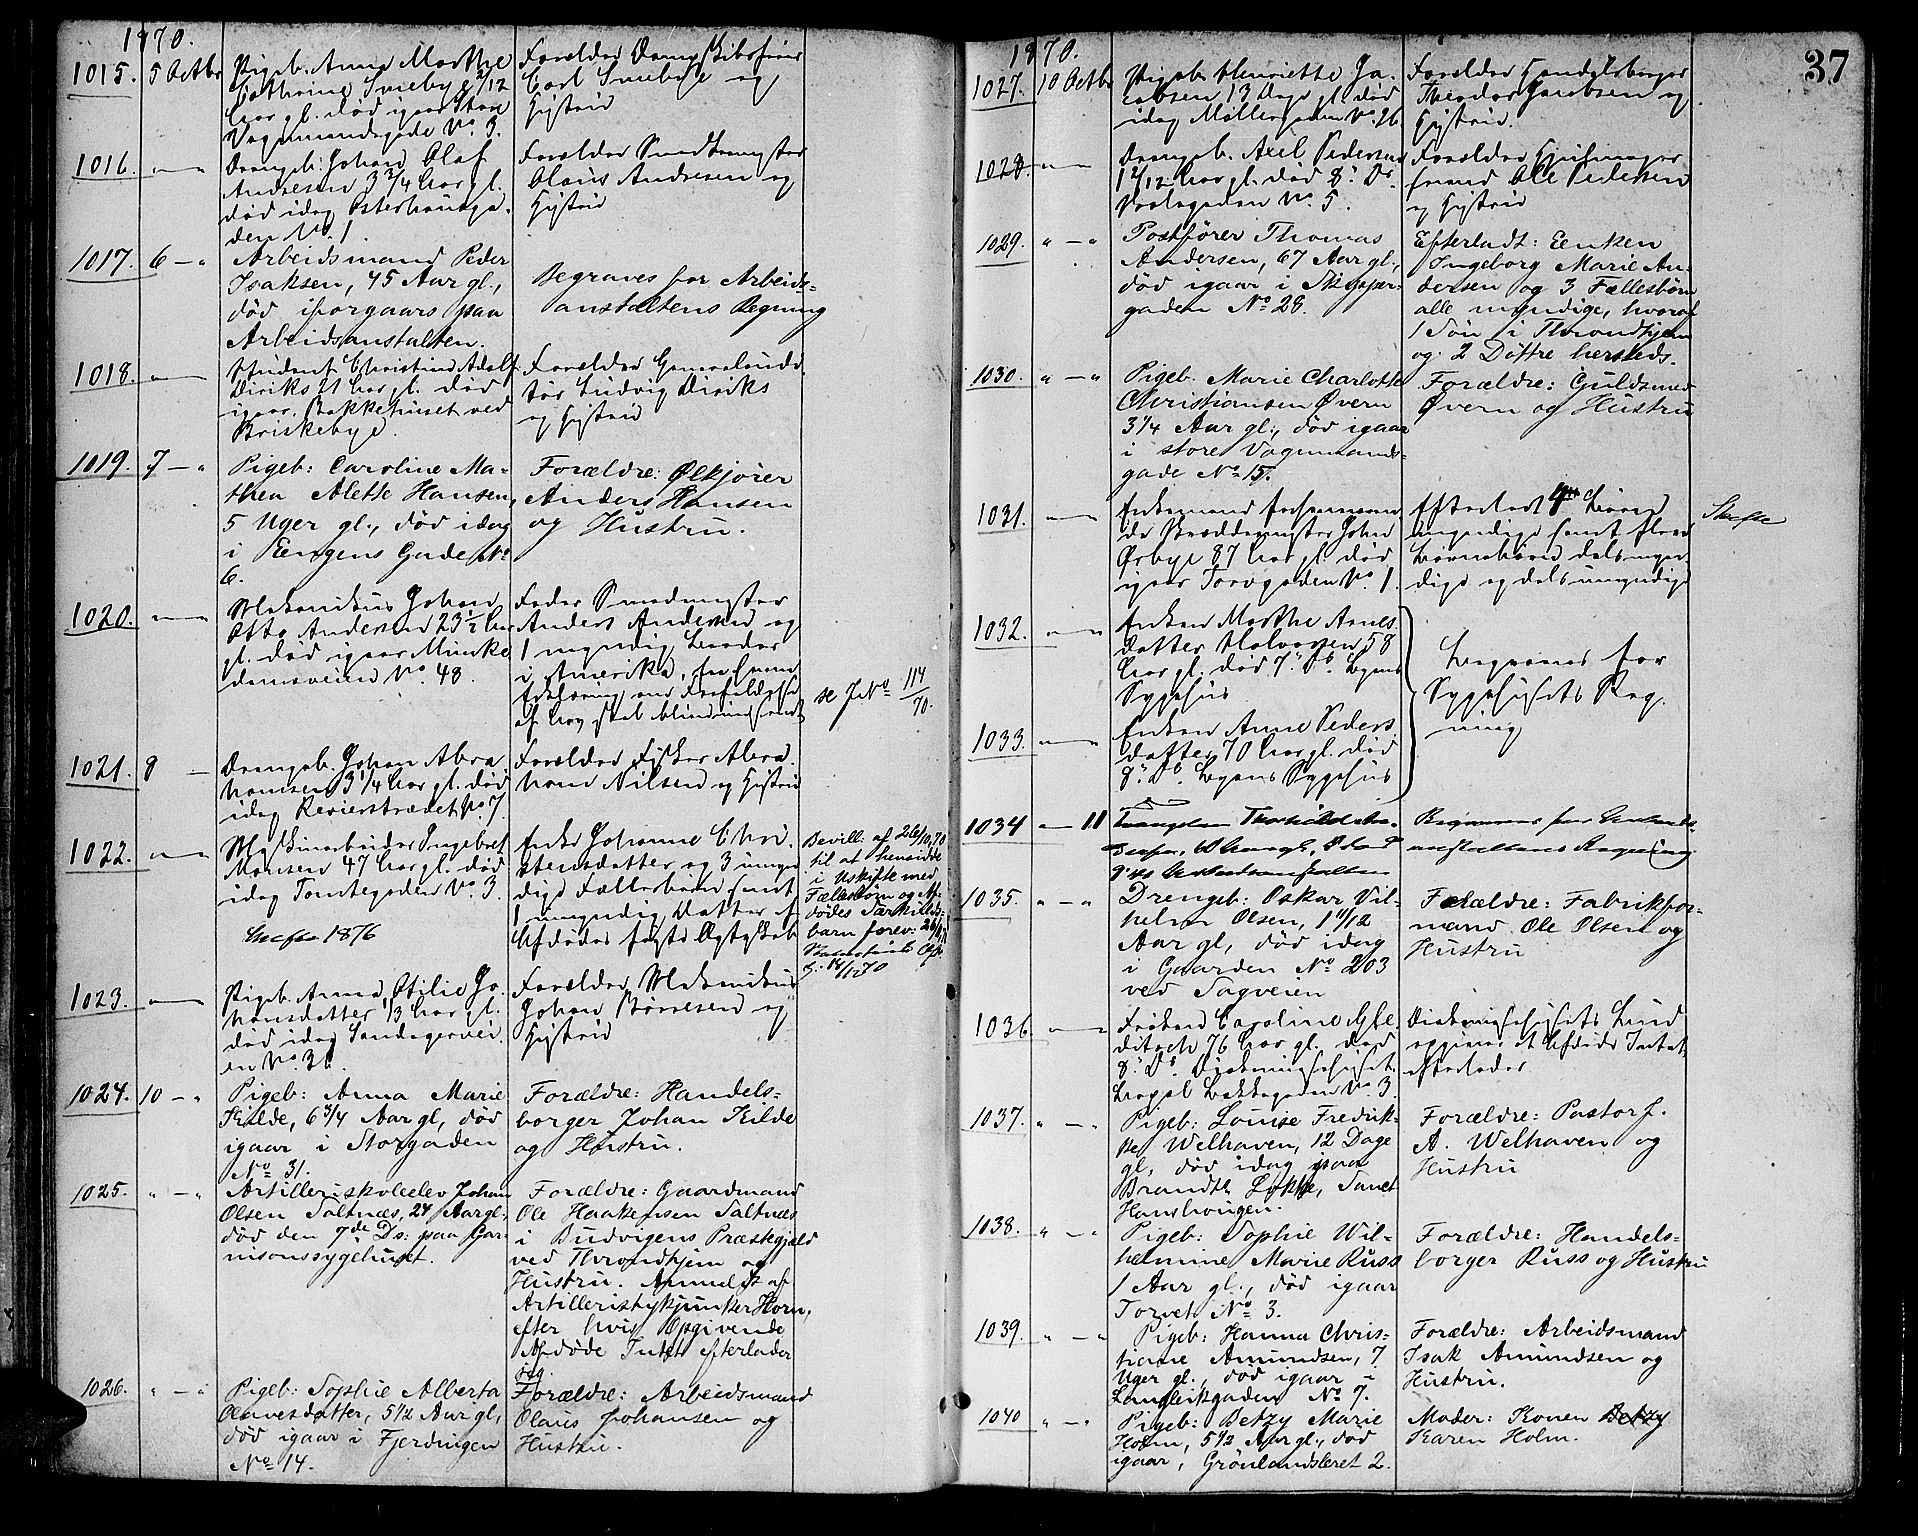 1870.
1015. 5 Octbr Pigeb. Anna Marthe Forældre Dampskibsfører
Cathrine Smeby 2/12 Carl Smebye og
Aar gl. død igaar Store Hustru
Vognmandsgade No. 3.
1016. Drengeb. Johan Olaf Forældre Smedmester
Andresen 3 3/4 Aar gl. Olaus Andresen og
død idag Osterhausga- Hustru
den No. 1.
1017. 6 Arbeidsmand Peder
Isaksen, 45 Aar gl., Begraves for Arbeids-
død iforgaars paa anstaltens Regning
Arbeidsanstalten.
1018. Student Christian Adolf Forældre
Diriks 21 Aar gl. død Ludvig Diriks
igaar Bakkehuset ved og Hustru
Briskebye.
1019. 7 Pigeb: Caroline Ma- Forældre: Ølkjører
thea Alette Hansen, Anders Hansen
5 Uger gl., død idag og Hustru.
i Enigens Gade No
6.
1020. Mekanikus Johan Fader Smedmester
Otto Andersen 23 1/2 Aar Anders Andersen og
gl. død igaar Munke 1 myndig Broder
damsveien No. 48. i Amerika,
af Arv skal se JNo 114/70.
1021. 8 Drengeb. Johan Abra Forældre Fisker Abra
hamsen 3 1/4 Aar gl. død ham Nilsen og Hustru
idag Revierstrædet No. 7.
1022. Maskinarbeider Ingebret Enke Johanne Chri Bevill: af 26/10 70
Monsen 47 Aar gl. død stensdatter og 3 umyn til at hensidde
idag Tomtegaden No. 3. dige Fællesbørn samt i Uskifte med
1 myndig Datter af Fællesbørn og Af-
Afdødes første Ægteskab dødes Særkulds-
1876 barn forev:
1023. Pigeb. Anna Otilie Jo- Forældre Mekanikus
hansdatter, 13 Aar gl. Johan Børresen og
død idag Sandagervei Hustru
en No. 31.
1024. 10 Pigeb: Anna Marie Forældre: Handels-
Kilde, 6 3/4 Aar gl, død borger Johan Kilde
igaar i Storgaden og Hustru.
No 31.
1025. Artilleriskoleelev Johan Forældre: Gaardmand
Olsen Saltnæs, 24 Aar gl, Ole Haakensen Saltnæs
død den 7de Ds: paa Gar- i Budvigens Præstegjeld
nisonssygehuset. ved Throndhjem og
Hustru. Anmeldt af
Artilleristykjunker Horn,
efter hvis Opgivende
Afdøde Intet efterlader
sig.
1026. Pigeb: Sophie Alberta Forældre: Arbeidsmand
Olavesdatter, 5 1/2 Aar gl, Olaus Johansen og
død igaar i Fjerdingen Hustru.
No 14.
37
1870.
1027. 10 Octbr Pigeb. Henriette Ja- Forældre Handelsborger
cobsen 13 Dage gl. død Theodor Jacobsen og
idag Møllergaden No. 26 Hustru.
1028. Drengeb. Axel Pedersen Forældre
1 2/12 Aar gl. død 8. Ds. Ole Pedersen
No. 5. og Hustru
1029. Postfører Thomas Efterladt: Enken
Andersen, 67 Aar gl., Ingeborg Marie An-
død igaar i Skipper- dersen og 3 Fællesbørn
gaden No 28. alle myndige, hvoraf
1 Søn i Throndhjem
og 2 Døttre hersteds.
1030. Pigeb. Marie Charlotte Forældre: Guldsmed
Christiansen Øvern Øvern og Hustru
3 1/4 Aar gl., død igaar
i store Vognmands-
gade No 15.
1031. Enkemand Efterladt Børn
John myndige samt
Ørbye 87 Aar gl. død Børnebørn dels myn
igaar Torvgaden No. 1. dige og dels umyndige
Skifte
1032. Enken Marthe Arnes
datter Halvorsen 58 Begraves for
Aar gl. død 7. Ds. Byens Sygehusets Reg
Sygehus ning
1033. Enken Anne Peders
datter 70 Aar gl. død
8. Ds. Byens Sygehus
1034 11 Begraves for Arbeids-
anstaltens Regning
1035. Drengeb: Oskar Vil- Forældre: Fabrikfor-
helm Olsen, 1 11/12 mand Ole Olsen og
Aar gl, død idag Hustru
i Gaarden No 203
ved Sagveien
1036. Frøken Caroline
76 Aar gl. død opgiver at Afdøde Intet
8. Ds. efterlader
No. 3
1037. Pigeb: Louise Fredrik- Forældre: Pastor J.
ke Welhaven, 12 Dage A. Welhaven og
gl, død idag paa Hustru
Brandts Løkke, Sanct
Hanshougen.
1038. Pigeb: Sophie Wil- Forældre: Handels-
helmine Marie Russ borger Russ og Hustru
1 Aar gl., død igaar
Torvet No 3.
1039. Pigeb: Hanna Chris- Forældre: Arbeidsmand
tiane Amundsen, 7 Isak Amundsen og
Uger gl., død igaar i Hustru.
Langleikgaden No 7.
1040 Pigeb: Betzy Marie Moder: Konen Betzy
Holm, 5 1/2 Aar gl., død Karen Holm.
igaar, Grönlandsleret 2.